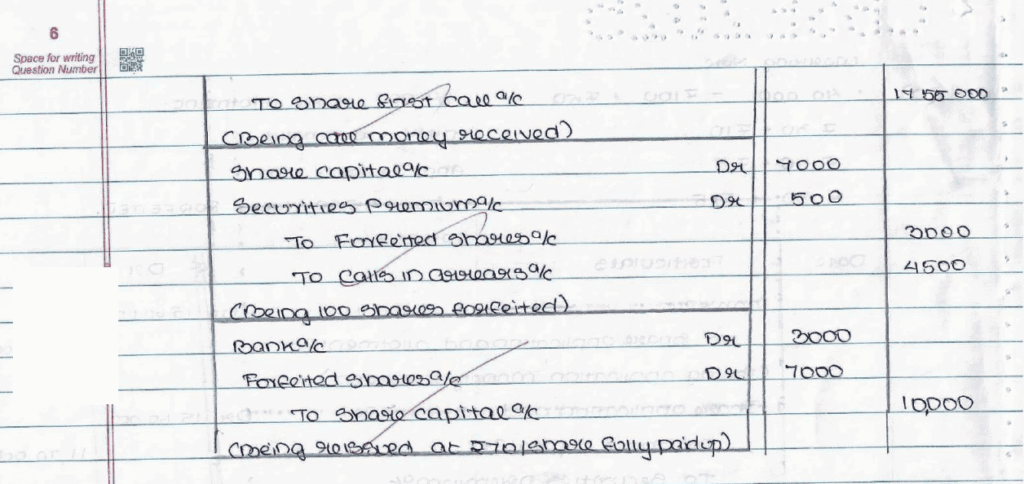 6
Space for writing
Question Number
To Share first call a/c 17 55 000
(Being call money received)
Share capital a/c Dr 7000
Securities Premium a/c Dr 500
To Forfeited shares a/c 3000
To Calls in arrears a/c 4500
(Being 100 shares forfeited)
Bank a/c Dr 3000
Forfeited shares a/c Dr 7000
To Share capital a/c 10,000
(Being reissued at ₹70/share fully paidup)